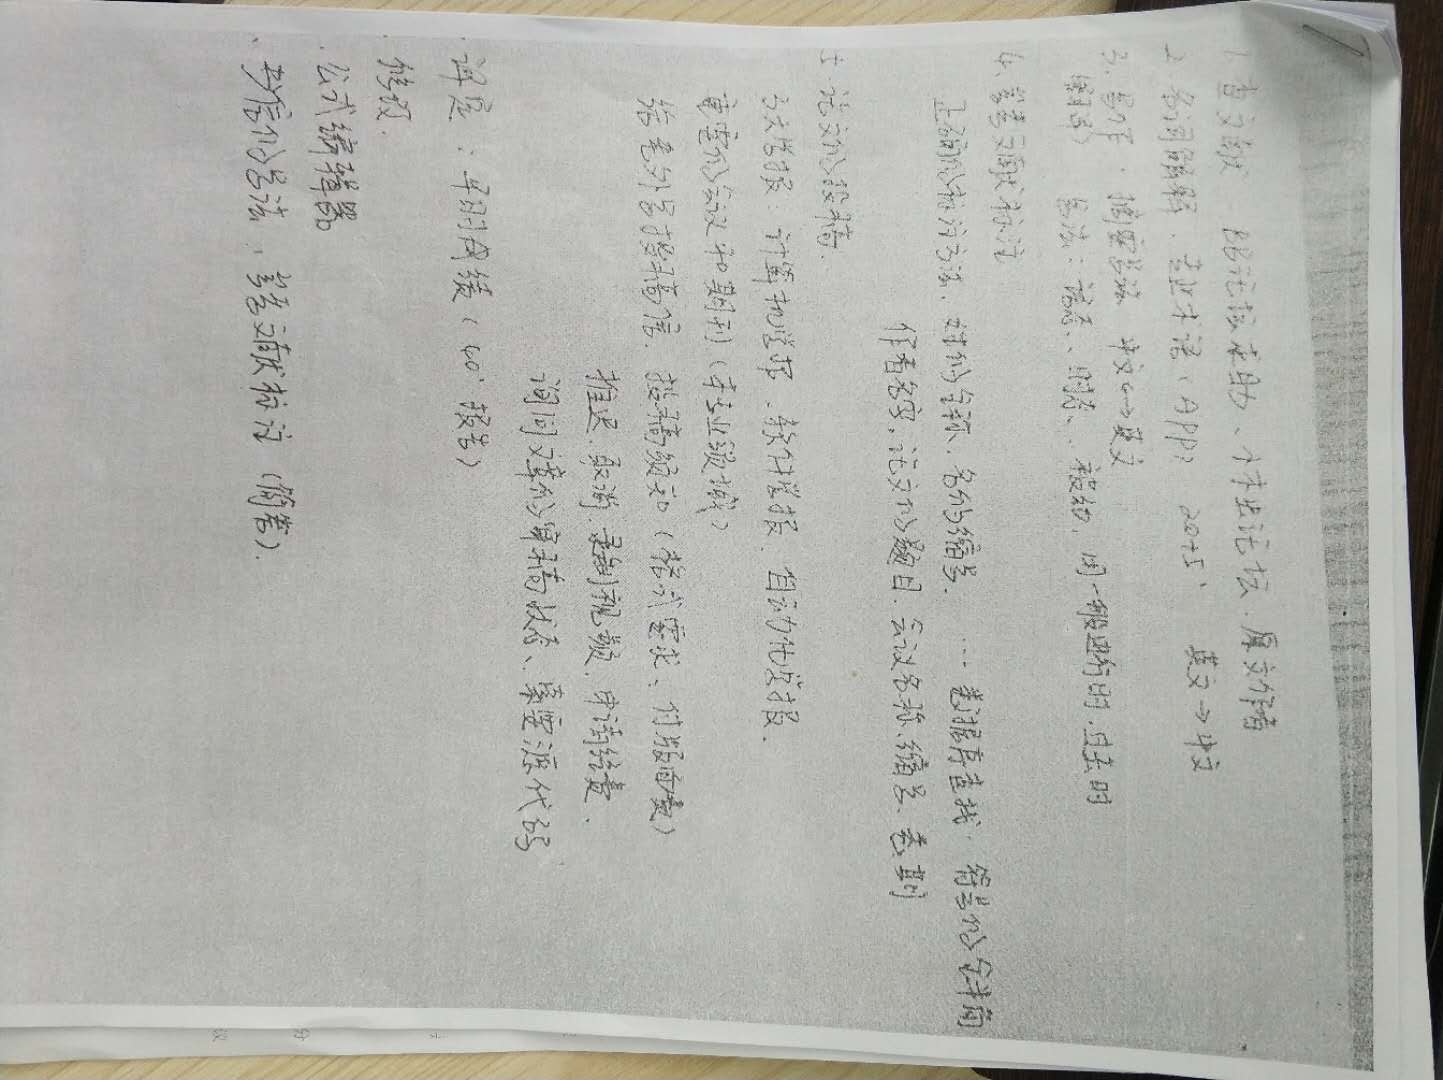 1. 查文献 BB论坛求助、小木虫论坛、原文作者
2. 名词解释、专业术语(APP) 20+5' 英文→中文
3. 写作 · 摘要写法 中文↔英文
(翻译) 写法：语态、时态、被动，用一般进行时、过去时
4. 参考文献标注
正确的标注方法，姓的全称、名的缩写、 … 数据库查找 符号的全半角
作者名字，论文的题目、会议名称、缩写、卷、期
5. 论文的投稿.
3大学报：计算机学报、软件学报、自动化学报.
重要的会议和期刊(本专业领域)
给老外写投稿信. 投稿须知(格式要求、付版面费)
推迟、取消、录制视频、申请经费.
询问文章的审稿状态、索要源代码
· 评定：平时成绩(40' 报告)
· 修改.
· 公式编辑器
· 书信的写法、参考文献标注(简答).
分
议